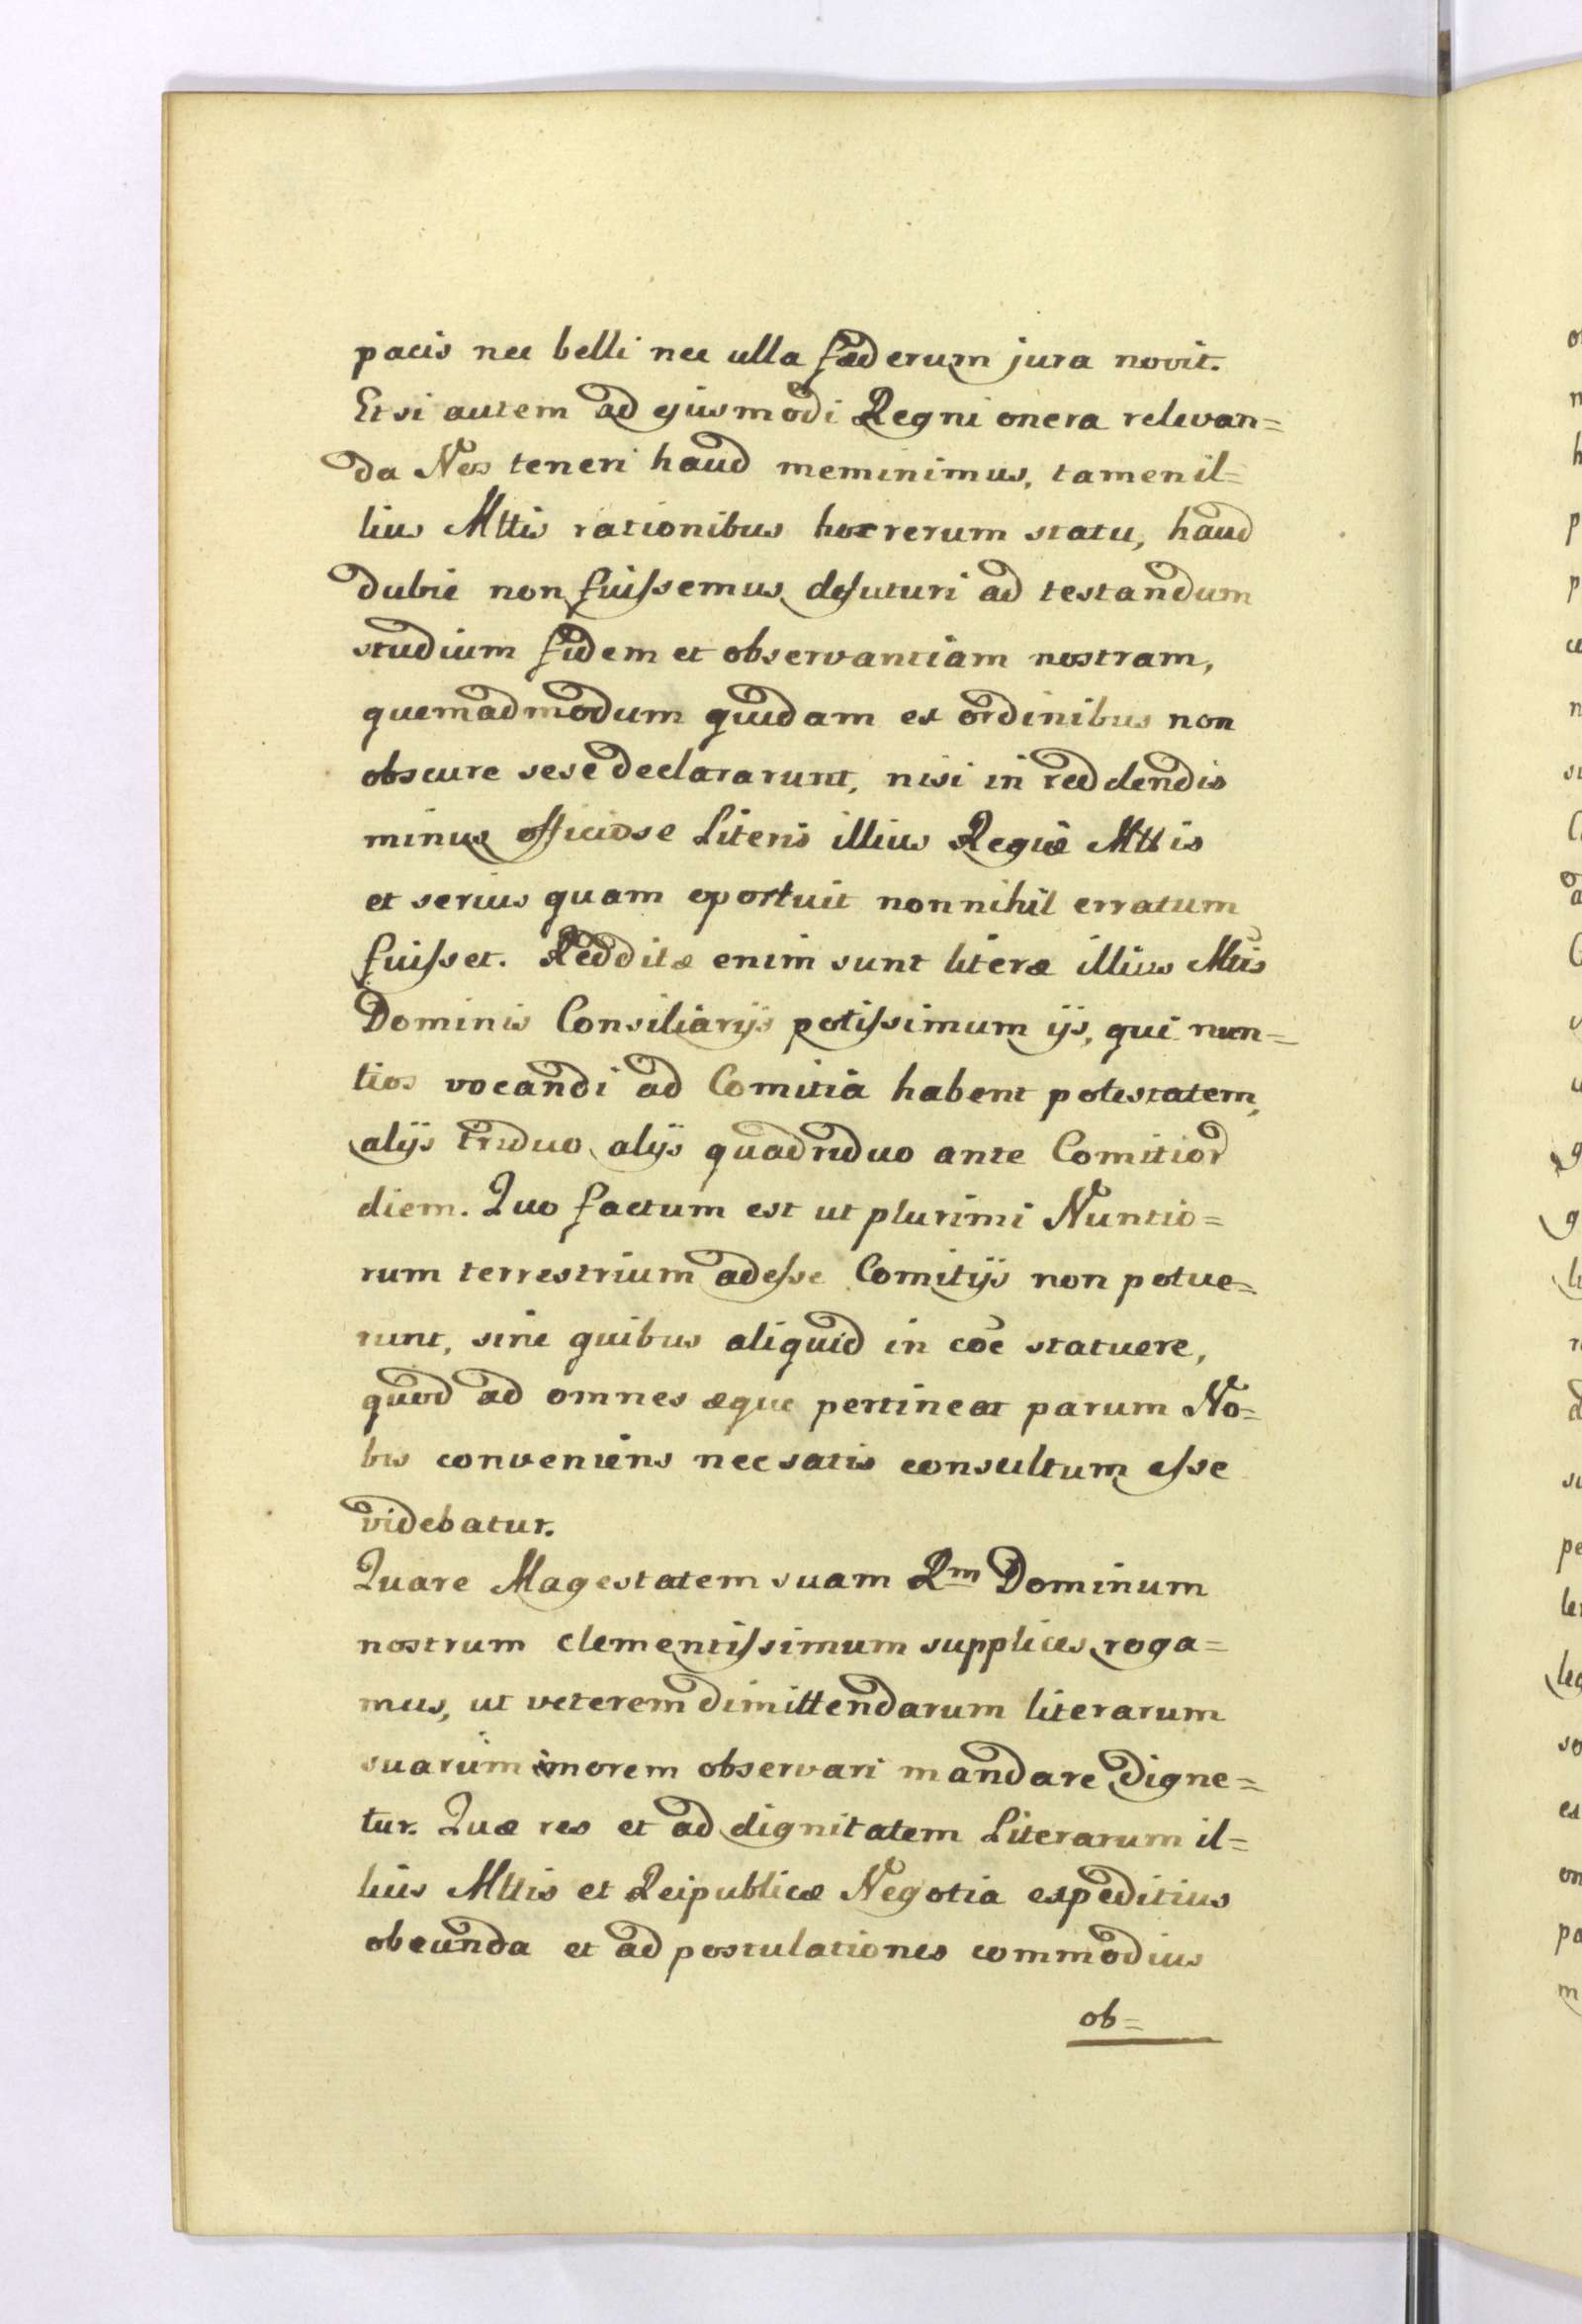 pacis nec belli nec ulla fæderum jura novit.
Etsi autem ad ejusmodi Regni onera relevan=
da Nos teneri haud meminimus, tamen il=
lius Mttis rationibus hoc rerum statu, haud
dubie non fuissemus defuturi ad testandum
studium fidem et observantiam nostram,
quemadmodum quidam ex ordinibus non
obscure sese declararunt, nisi in reddendis
minus officiose Literis illius Regiæ Mttis
et serius quam oportuit nonnihil erratum
fuisset. Redditæ enim sunt literæ illius Mtis
Dominis Consiliarijs potissimum ijs, qui nun=
tios vocandi ad Comitia habent potestatem,
alijs triduo alijs quadriduo ante Comitior
diem. Quo factum est ut plurimi Nuntio=
rum terrestrium adesse Comitijs non potue=
runt, sine quibus aliquid in coe statuere,
quod ad omnes æque pertineat parum No=
bis conveniens nec satis consultum esse
videbatur.
Quare Magestatem suam Rm Dominum
nostrum clementissimum supplices roga=
mus, ut veterem dimittendarum literarum
suarum morem observari mandare digne=
tur. Quæ res et ad dignitatem Literarum il=
lius Mttis et Reipublicæ Negotia expeditius
obeunda et ad postulationes commodius
ob=